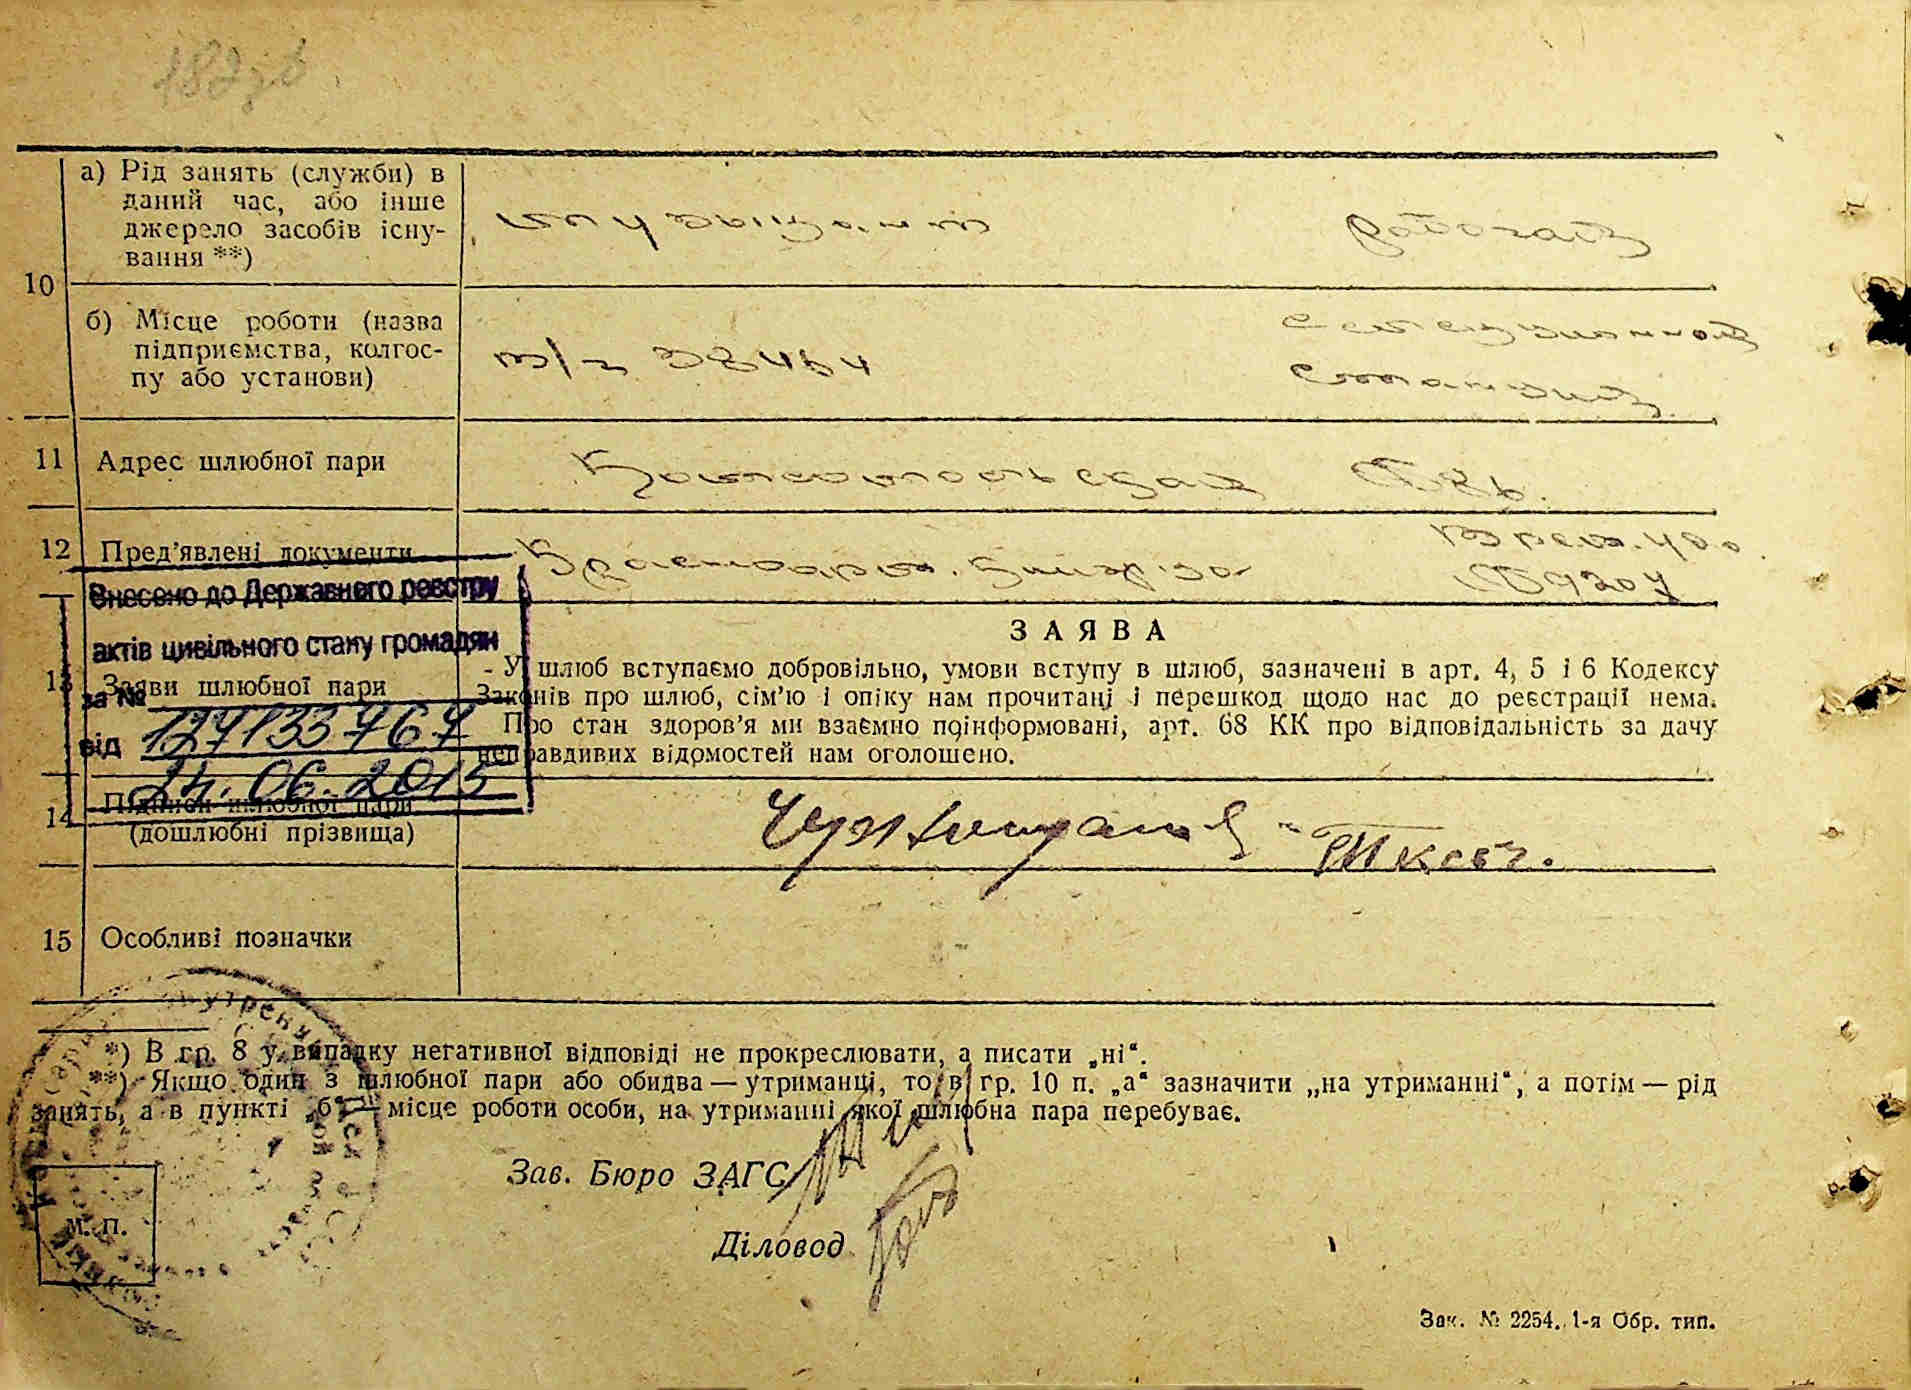 182 зв
а) Рід занять (служби) в
даний час, або інше
джерело засобів існу-
вання **)
музыкант
рабочая
10
б) Місце роботи (назва
підприємства, колгос-
пу або установи)
в/ч
селекционной
станции
11 Адрес шлюбної пари
12 Пред'явлені документи
Внесено до Державного реєстру
актів цивільного стану громадян
за №
127133767
від
24.06.2015
З А Я В А
13 Заяви шлюбної пари
- У шлюб вступаємо добровільно, умови вступу в шлюб, зазначені в арт. 4, 5 і 6 Кодексу
Законів про шлюб, сім'ю і опіку нам прочитані і перешкод щодо нас до реєстрації нема.
Про стан здоров'я ми взаємно поінформовані, арт. 68 КК про відповідальність за дачу
неправдивих відомостей нам оголошено.
14 Підписи шлюбної пари
(дошлюбні прізвища)
15 Особливі позначки
*) В гр. 8 у випадку негативної відповіді не прокреслювати, а писати „ні“.
**) Якщо один з шлюбної пари або обидва — утриманці, то в гр. 10 п. „а“ зазначити „на утриманні“, а потім — рід
занять, а в пункті „б“ — місце роботи особи, на утриманні якої шлюбна пара перебуває.
Зав. Бюро ЗАГС
М. П.
Діловод
Зак. № 2254. 1-я Обр. тип.